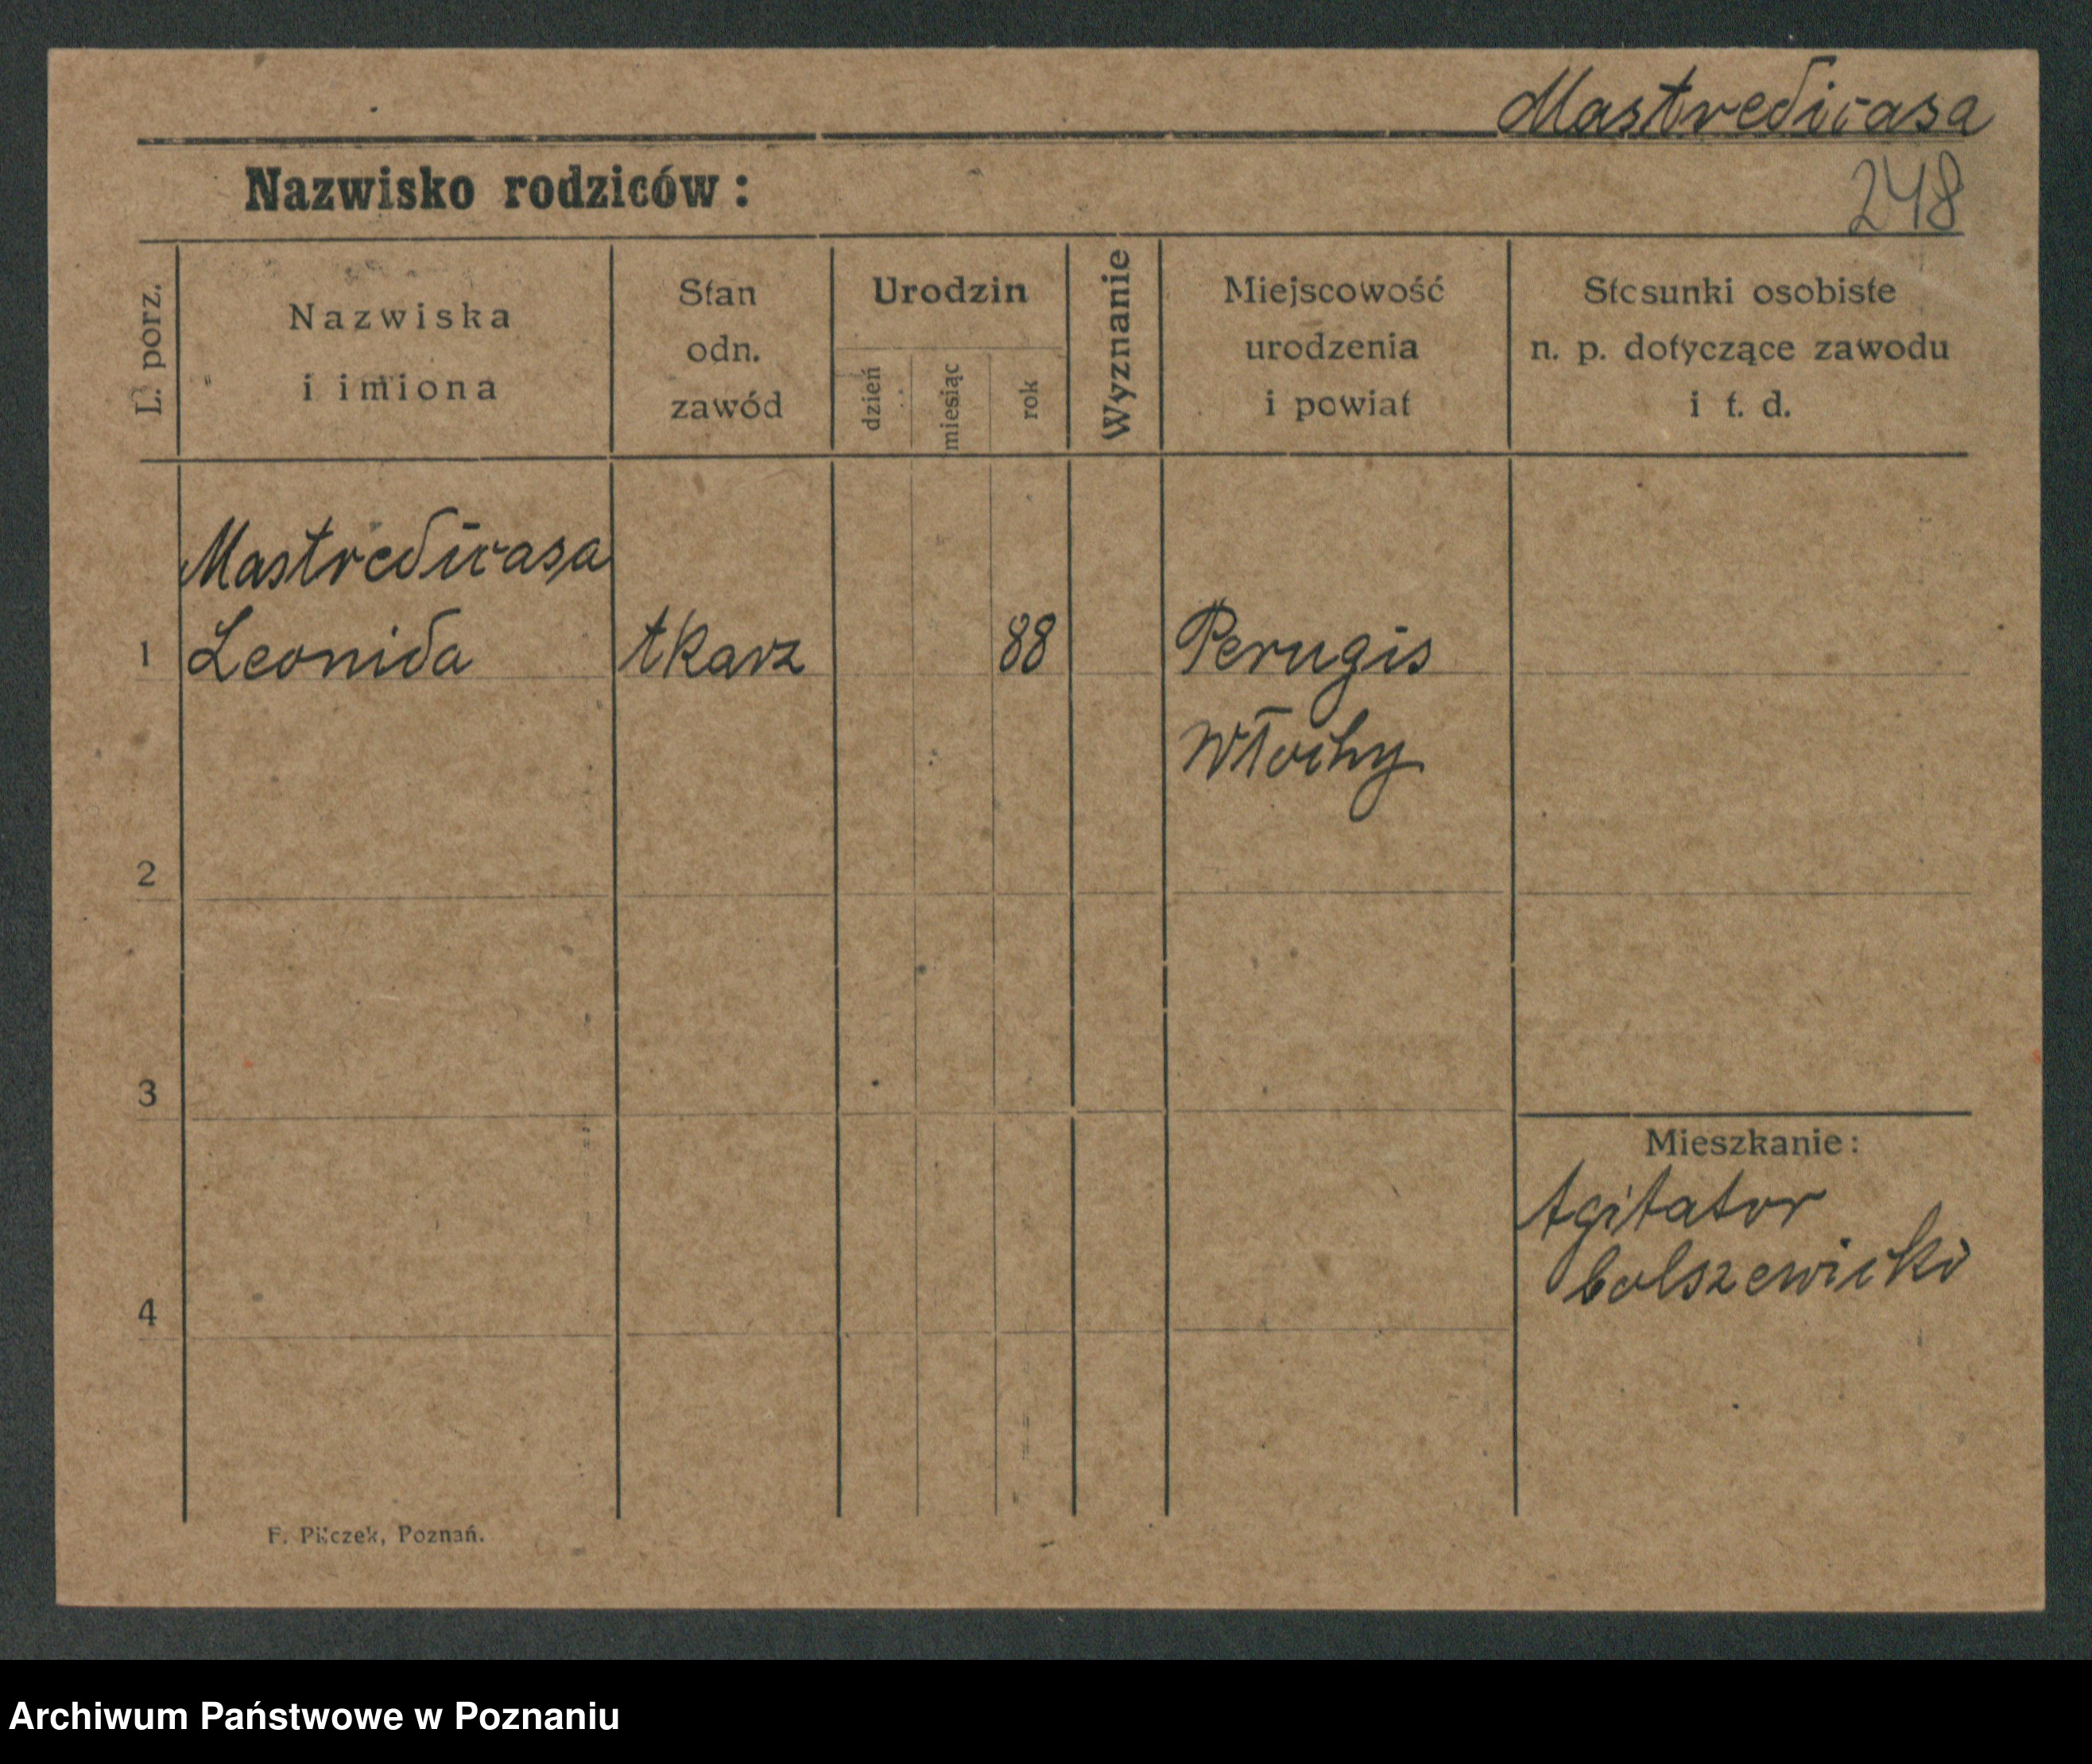 Mastredicasa
Nazwisko rodziców:
248
L. porz.
Nazwiska
i imiona
Stan
odn.
zawód
Urodzin
dzień
miesiąc
rok
Wyznanie
Miejscowość
urodzenia
i powiat
Stosunki osobiste
n. p. dotyczące zawodu
i t. d.
Mastredicasa
1 Leonida tkarz 88 Perugis
Włochy
2
3
Mieszkanie:
Agitator
bolszewicki
4
F. Pilczek, Poznań.
Archiwum Państwowe w Poznaniu